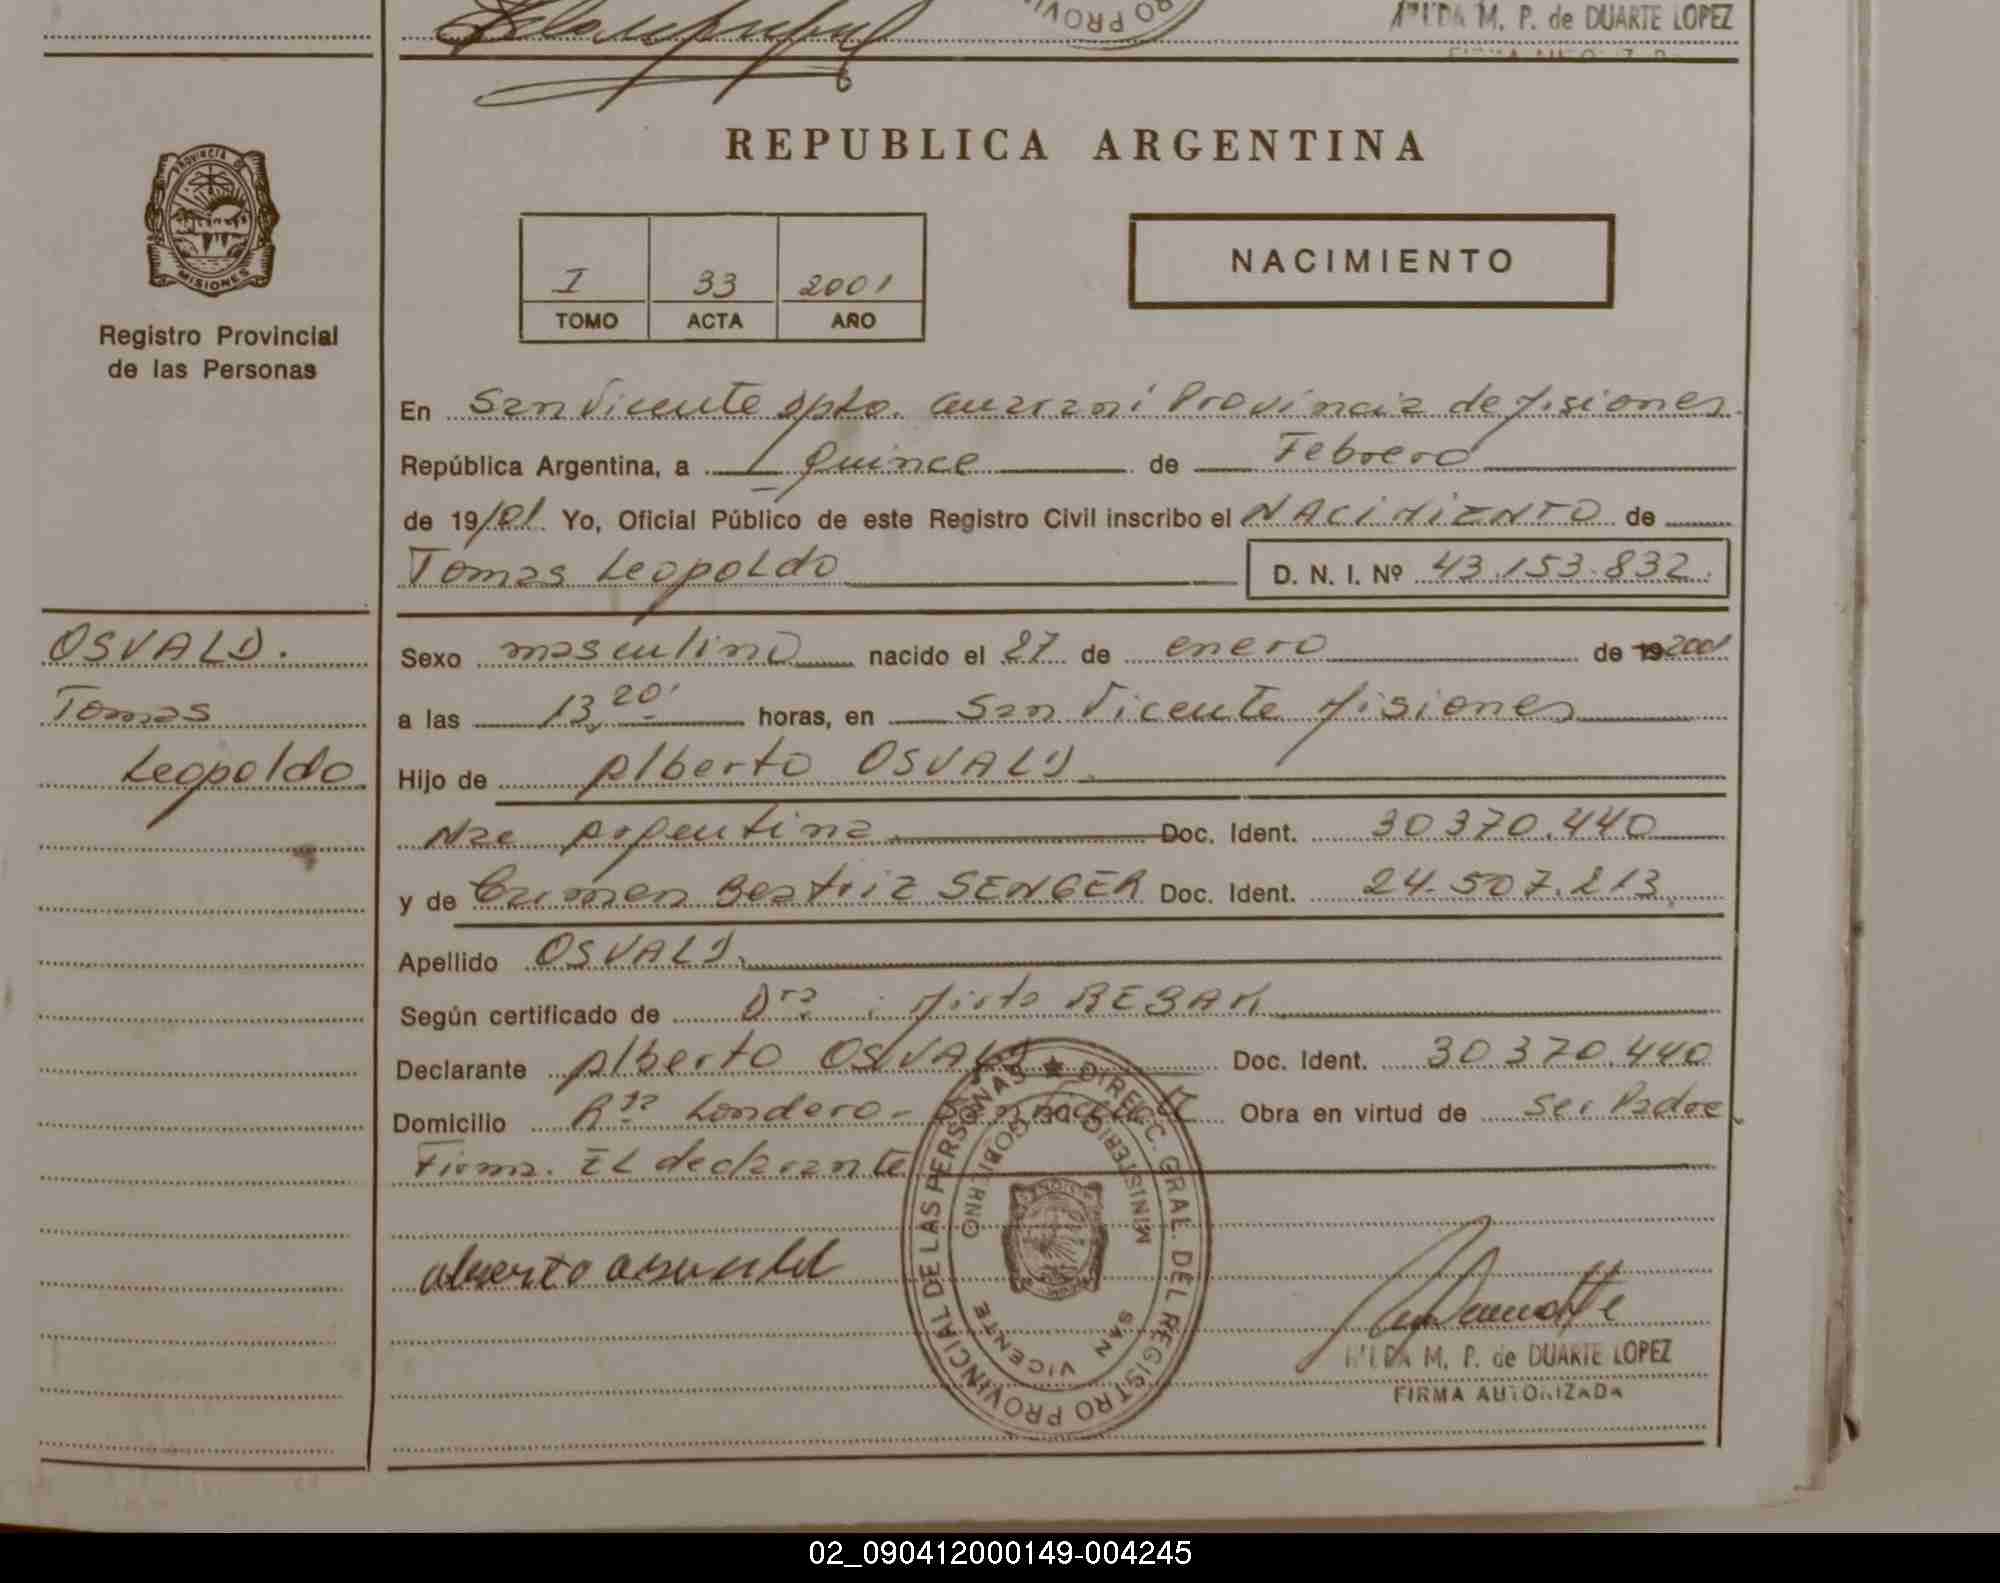 M. P. de DUARTE LOPEZ
REPUBLICA ARGENTINA
PROVINCIA DE
MISIONES
Registro Provincial
de las Personas
NACIMIENTO
I 33 2001
TOMO ACTA AÑO
En San Vicente Dpto. Guarani Provincia de Misiones
República Argentina, a Quince de Febrero
de 19/01 Yo, Oficial Público de este Registro Civil inscribo el NACIMIENTO de
Tomas Leopoldo D. N. I. Nº 43.153.832.
OSVALD.
Tomas
Leopoldo
Sexo masculino nacido el 27 de enero de 19 2001
a las 13,20' horas, en San Vicente Misiones
Hijo de Alberto OSVALD
Nac Argentina Doc. Ident. 30370.440
y de Carmen Beatriz SENGER Doc. Ident. 24.507.213
Apellido OSVALD.
Según certificado de Dra : Mirta
Declarante Alberto OSVALD Doc. Ident. 30370.440
Domicilio Londero - Obra en virtud de ser Padre
Firma. El declarante
alberto osvald
REGISTRO PROVINCIAL DE LAS PERSONAS ★ DIRECC. GRAL. DEL
MINISTERIO GOBIERNO
SAN VICENTE
M. P. de DUARTE LOPEZ
FIRMA AUTORIZADA
02_090412000149-004245